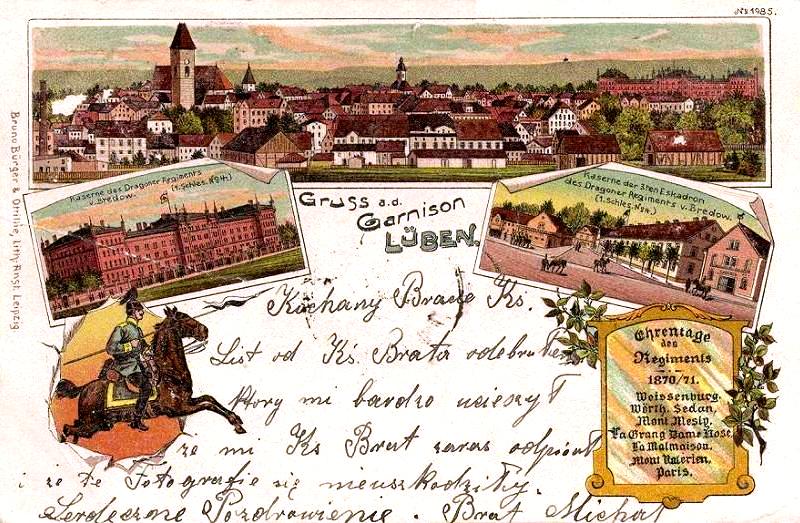 No 1985.
Bruno Bürger & Ottillie, Lith. Anst. Leipzig
Kaserne des Dragoner Regiments
v. Bredow. (1. Schles. No 4.)
Gruss a.d.
Garnison
LÜBEN.
Kaserne der 3ten Eskadron
des Dragoner Regiments v. Bredow.
(1. Schles. No 4.)
Kochany Bracie Ks.
List od Ks. Brata odebrałem
ktory mi bardzo ucieszył
ze mi Ks Brat zaras odpisał
i ze te Fotografie się nieuszkodziły.
Serdeczne Pozdrowienie. Brat Michał
Ehrentage
des
Regiments
1870/71.
Weissenburg.
Wörth. Sedan.
Mont Mesly.
La Grang Dame Rose.
La Malmaison.
Mont Valerien.
Paris.